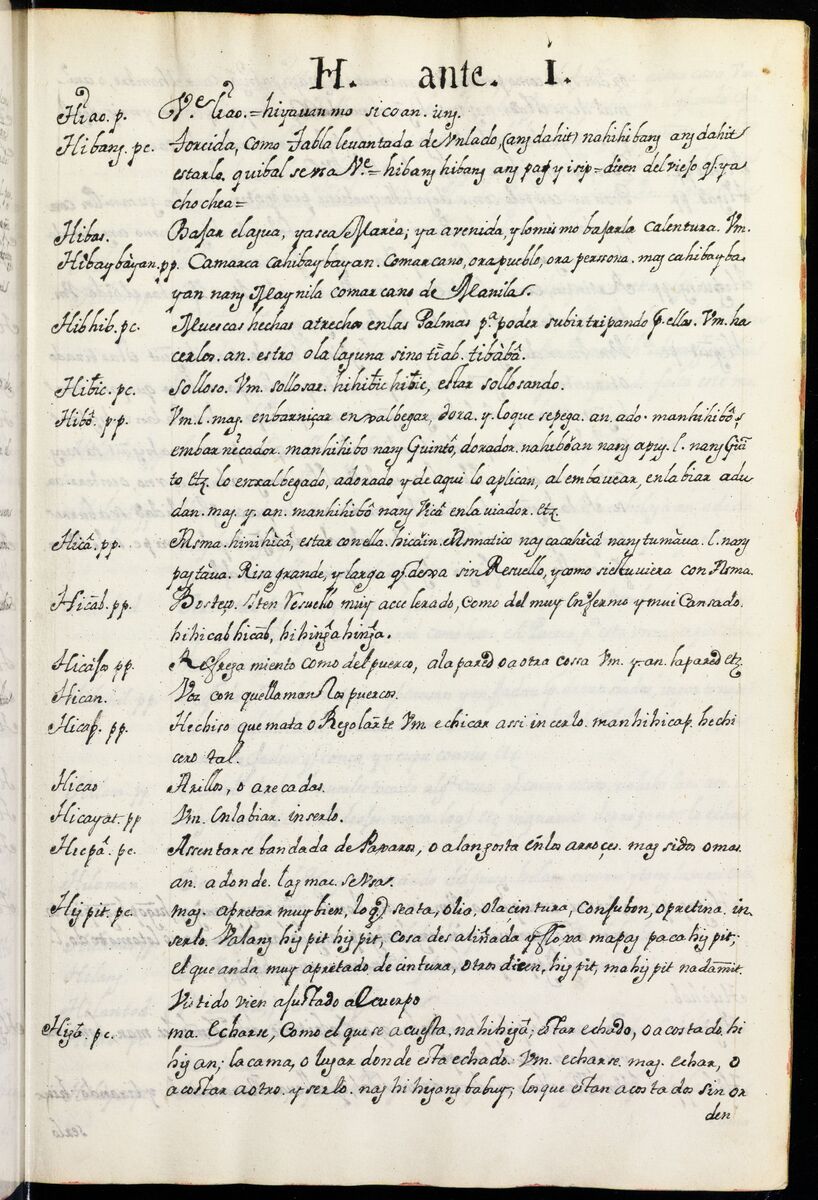 H. ante. I.
Hiao. p. Ve. liao. = hiyauan mo si coan. ung.
Hibang. pc. Torcida, como Tabla levantada de Vnlado, (ang dahit) nahihibang ang dahit
estarlo. quibal se vsa Ve. = hibang hibang ang pag yisip = dicen del viejo q. ya
chochea =
Hibas. Bajar el agua, ya sea Marea; ya avenida, y lomismo bajar la calentura. Vm.
Hibaybàyan. pp. Camarca cahibaybayan. Comarcano, ora pueblo, ora persona. mag cahibayba
yan nang Maynila comarcano de Manila.
Hibhib. pc. Muescas hechas a trechos en las Palmas pa. poder subir tripando p. ellas. Vm. ha
cerlos. an.
Hibic. pc. Solloso. Vm. sollosar. hihibic hibic, estar sollosando.
Hibô. pp. Vm. l. mag. enbarniçar enxalbegar, dora. y. loque sepega. an. ado. manhihibô,
embarneçador. manhihibo nang Guintô, dorador. nahiboan nang apuy. l. nang Guin
to etz. lo enxalbegado, adorado y de aqui lo aplican, al embaucar, enlabiar adu
dan. mag. y. an. manhihibô nang Vicâ enlaviador. etz
Hicâ. pp. Asma. hinihicâ, estar con ella. hicâin. Asmatico nag cacahicâ nang tumaua. l. nang
pagtaua. Risa grande, y larga q. dexa sin Resuello, y como si estuviera con Asma.
Hicab. pp. Bosteço. Iten Resuello muy accelerado, como del muy Enfermo y mui Cansado.
hihicab hicab, hihinga hinga.
Hicàso pp. Refregamiento como del puerco, a la pared o a otra cossa Vm. y. an. la pared etz.
Hican. Voz con que llaman los puercos.
Hicap. pp. Hechiso que mata o Vm echicar assi in cerlo. manhihicap. hechi
cero tal.
Hicao Arillos, o arecadas.
Hicayat. pp Vm. Enlabiar. in serlo.
Hicpâ. pc. Assentarse bandada de Paxaros, o a langosta en los arroçes. mag sidos o mas.
an. a donde. tag mac. se Vsa.
Higpit. pc. mag. apretar muy bien, lo q seata, o lio, o la cintura, con Jubon, o pretina. in
serlo. Valang hig pit hig pit, cosa desaliñada y floxa mapag paca hig pit;
el que anda muy apretado de cintura, otros dicen, hig pit, mahig pit na damit.
Vistido vien ajustado al cuerpo
Higa. pc. ma. Echarse, Como el que se acuesta, nahihigâ; estar echado, o acostado. hi
higan; la cama, o lugar donde esta echado. Vm. echarse. mag. echar, o
acostar a otro. y serlo. nag hi higang babuy, los que estan acostados sin or
den